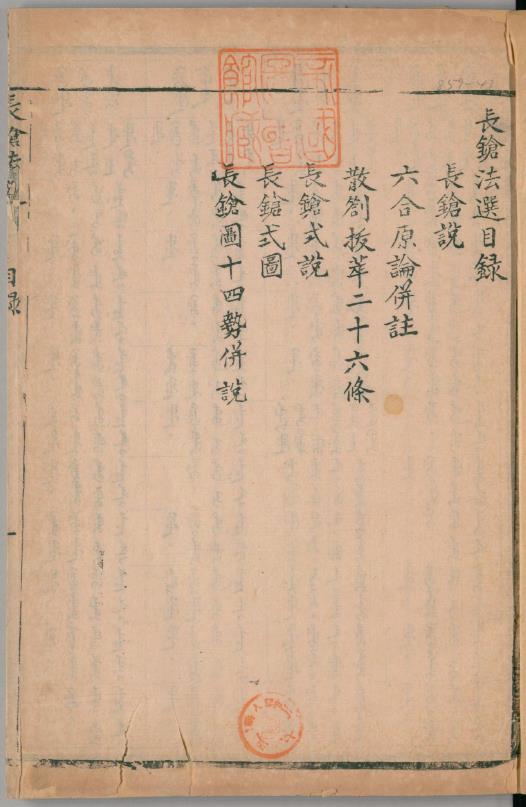 長鎗法選目録
長鎗說
六合原論併註
散劄拔萃二十六條
長鎗式說
長鎗式圖
長鎗圖十四勢併說
長鎗法
目録